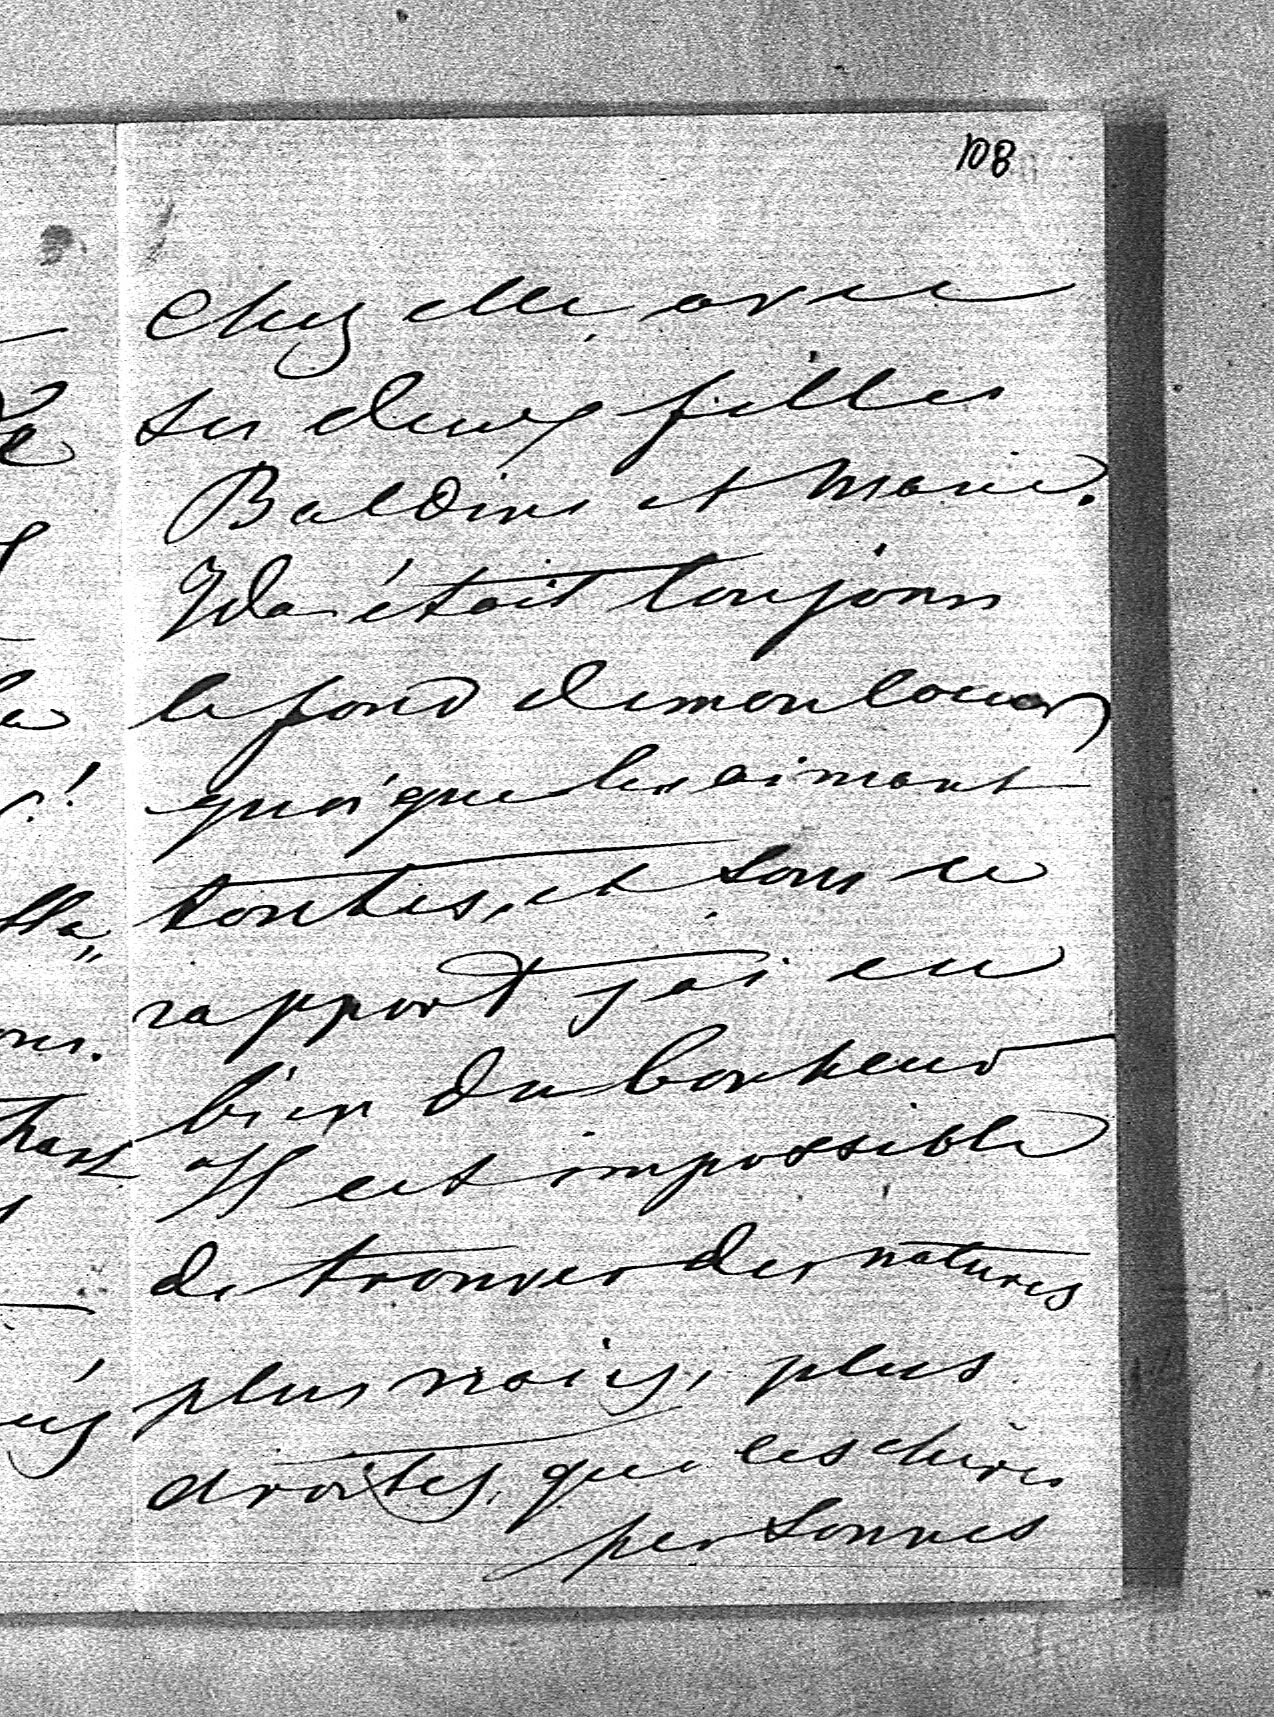 108
Chez elle, avec
ses deux filles
Baldine et Marie.
Ida était toujours
le fond de mon coeur
quoique les aimant
toutes, et sous ce
rapport j'ai eu
bien du bonheur
Il est impossible
de trouver des natures
plus vraies, plus
droites, que ces chères
personnes